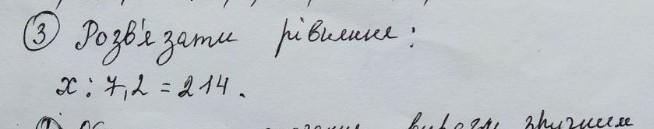 ③ Розв'язати рівняння:
x : 7,2 = 214.
вирази зручним